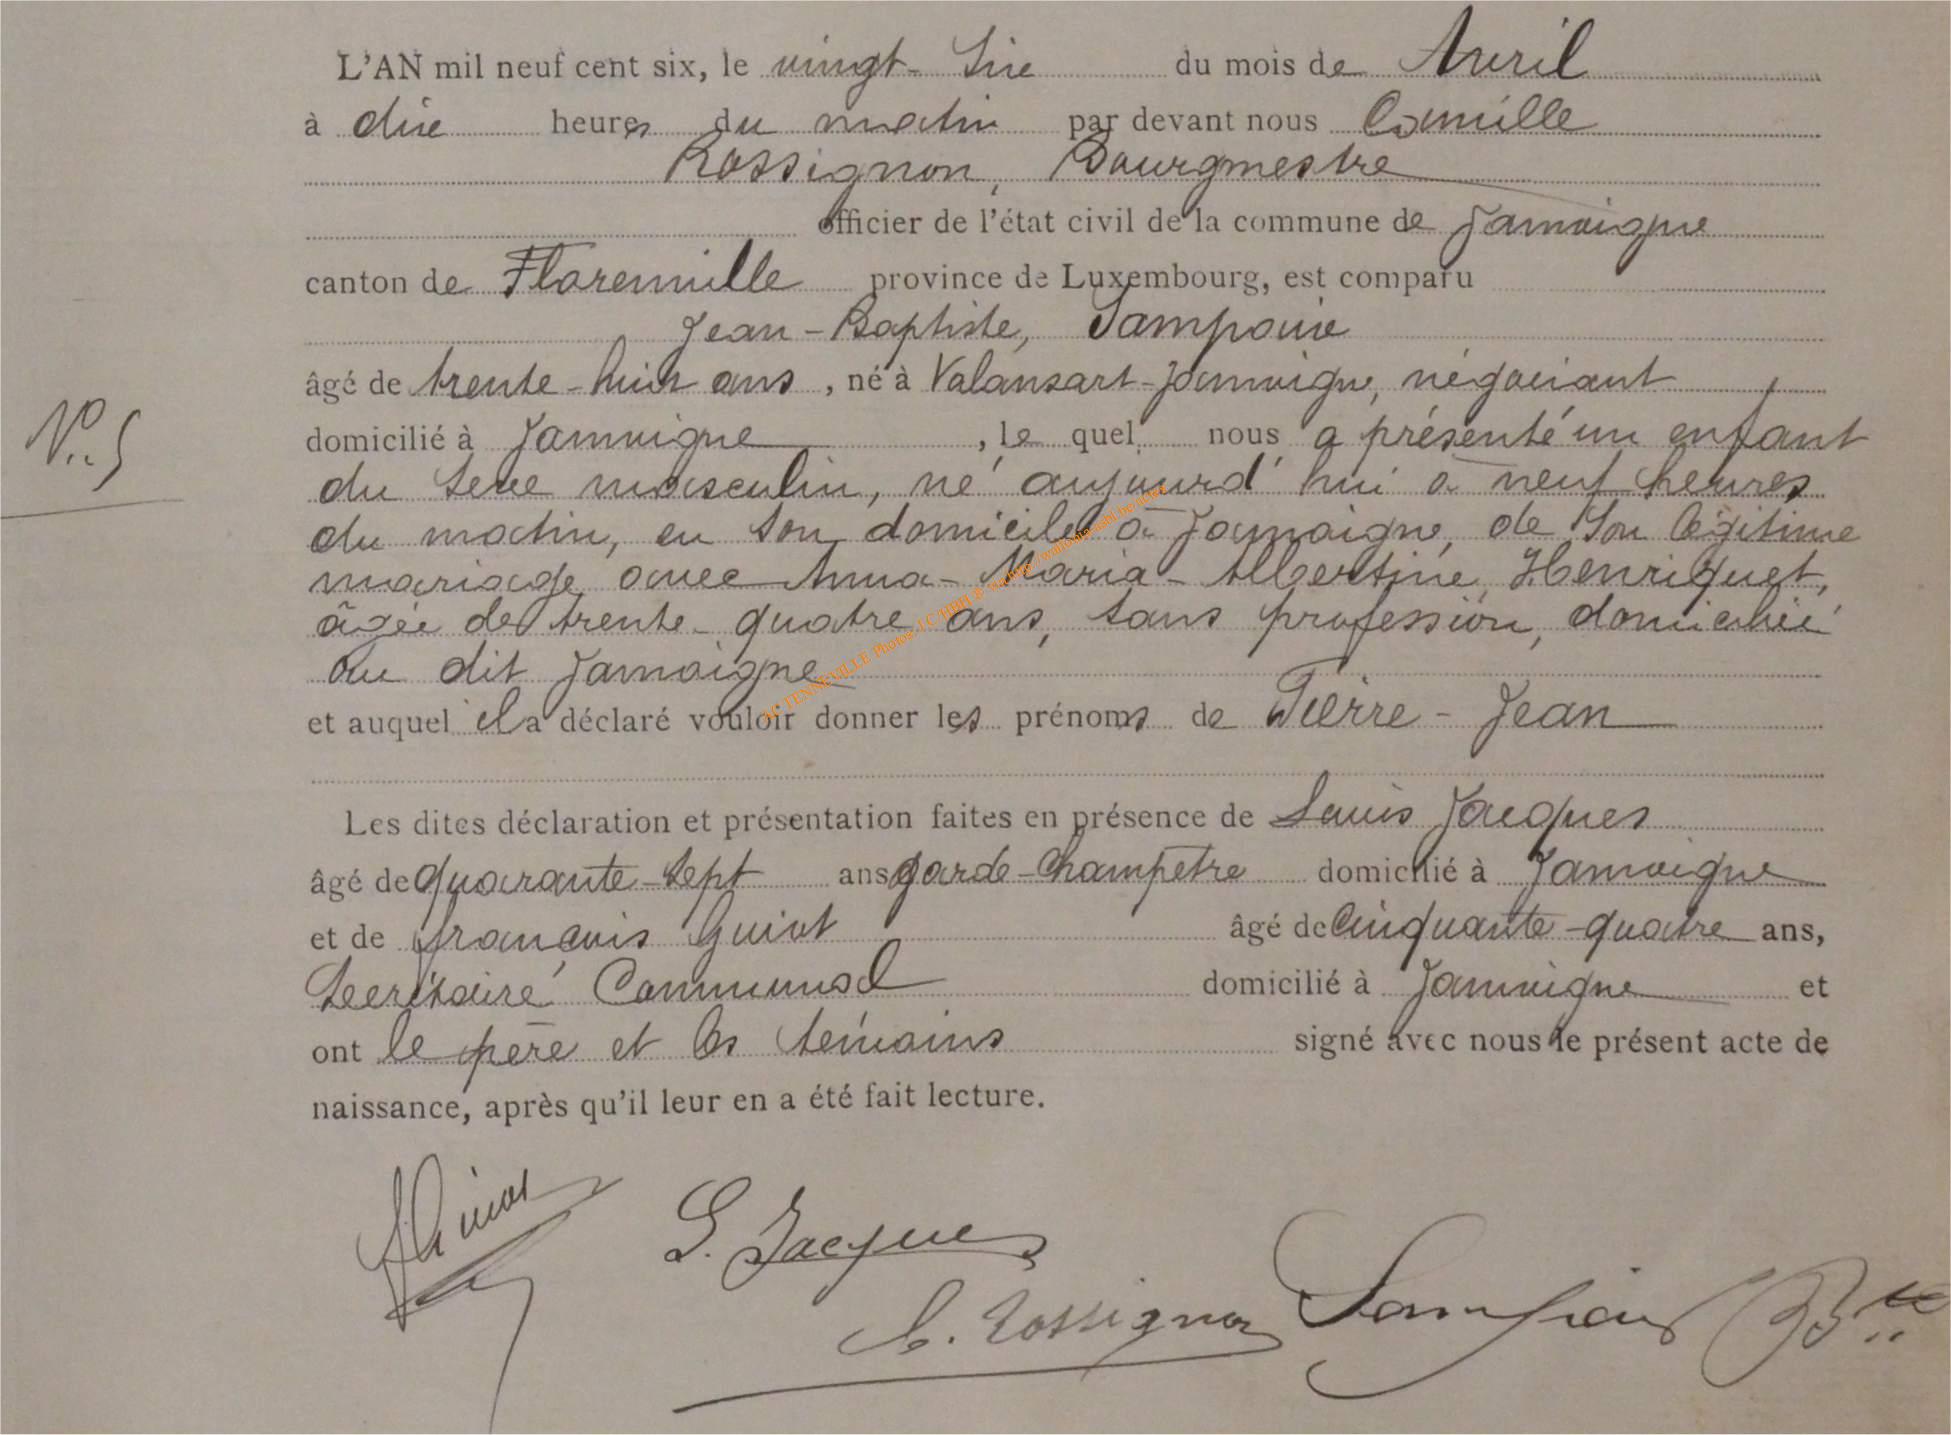 L'AN mil neuf cent six, le vingt-six du mois de Avril
à dix heures du matin par devant nous Camille
Rossignon, Bourgmestre
officier de l'état civil de la commune de Jamoigne
canton de Florenville province de Luxembourg, est comparu
Jean-Baptiste, Sampoux
âgé de trente-huit ans, né à Valansart-Jamoigne, négociant
domicilié à Jamoigne, le quel nous a présenté un enfant
du sexe masculin, né aujourd'hui à neuf heures
du matin, en son domicile à Jamoigne, de son légitime
mariage avec Anna-Maria-Albertine Henriquet,
âgée de trente-quatre ans, sans profession, domiciliée
au dit Jamoigne
et auquel il a déclaré vouloir donner les prénoms de Pierre-Jean
Les dites déclaration et présentation faites en présence de Louis Jacques
âgé de quarante-sept ans garde-champêtre domicilié à Jamoigne
et de françois Guiot âgé de Cinquante-quatre ans,
Secrétaire Communal domicilié à Jamoigne et
ont le père et les témoins signé avec nous le présent acte de
naissance, après qu'il leur en a été fait lecture.
N° 5
L. Jacques
C. Rossignon
ACTENNEVILLE Photos J.C HBILE